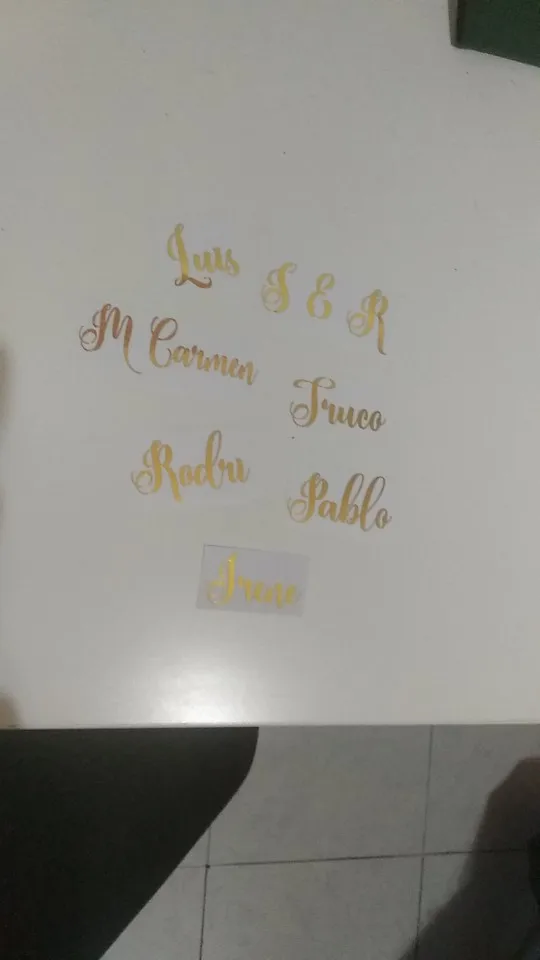 Luis
S E R
M Carmen
Truco
Rodri
Pablo
Irene